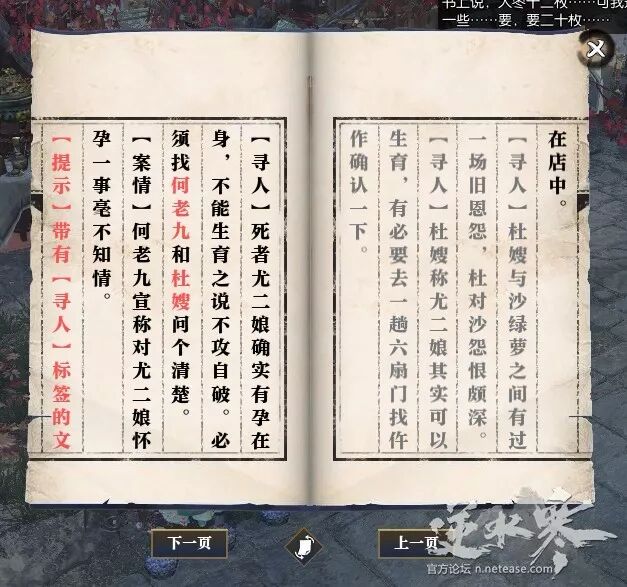 书上说，大冬十二枚……可我
一些……要，要二十枚……
在店中。
【寻人】杜嫂与沙绿萝之间有过
一场旧恩怨，杜对沙怨恨颇深。
【寻人】杜嫂称尤二娘其实可以
生育，有必要去一趟六扇门找仵
作确认一下。
【寻人】死者尤二娘确实有孕在
身，不能生育之说不攻自破。必
须找何老九和杜嫂问个清楚。
【案情】何老九宣称对尤二娘怀
孕一事毫不知情。
【提示】带有【寻人】标签的文
下一页
上一页
逆水寒
官方论坛 n.netease.com